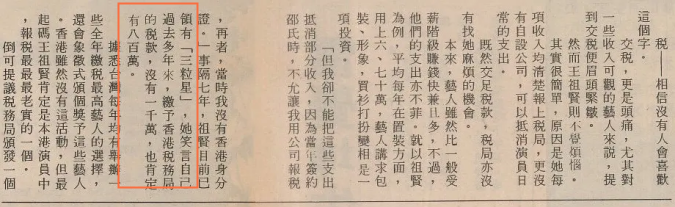 税——相信沒有人會喜歡
這個字。
交税，更是頭痛，尤其對
一些收入可觀的藝人來說，提
到交税便眉頭緊皺。
然而王祖賢則不覺煩惱。
其實很簡單，原因是她每
項收入均清楚報上税局，更沒
有自設公司，可以抵消演員日
常的支出。
既然交足税款，税局亦沒
有找她麻煩的機會。
本來，藝人雖然比一般受
薪階級賺錢快兼且多，不過，
他們的支出亦不菲。就以祖賢
為例，平均每年在置裝方面，
用上六、七十萬，藝人講求包
裝、形象，買衫打扮變相是一
項投資。
「但我卻不能把這些支出
抵消部分收入，因為當年簽約
邵氏時，不允讓我用公司報税
，再者，當時我沒有香港身分
證。」事隔七年，祖賢目前已
領有「三粒星」，她笑言自己
過去多年來，繳予香港税務局
的税款，沒有一千萬，也肯定
有八百萬。
據悉台灣每年均有舉辦一
些全年繳税最高藝人的選擇，
還會象徵式頒個獎予這些藝人
。香港雖然沒有這活動，但最
起碼王祖賢肯定是本港演員中
，報税最最老實的一個。
倒可提議税務局頒發一個